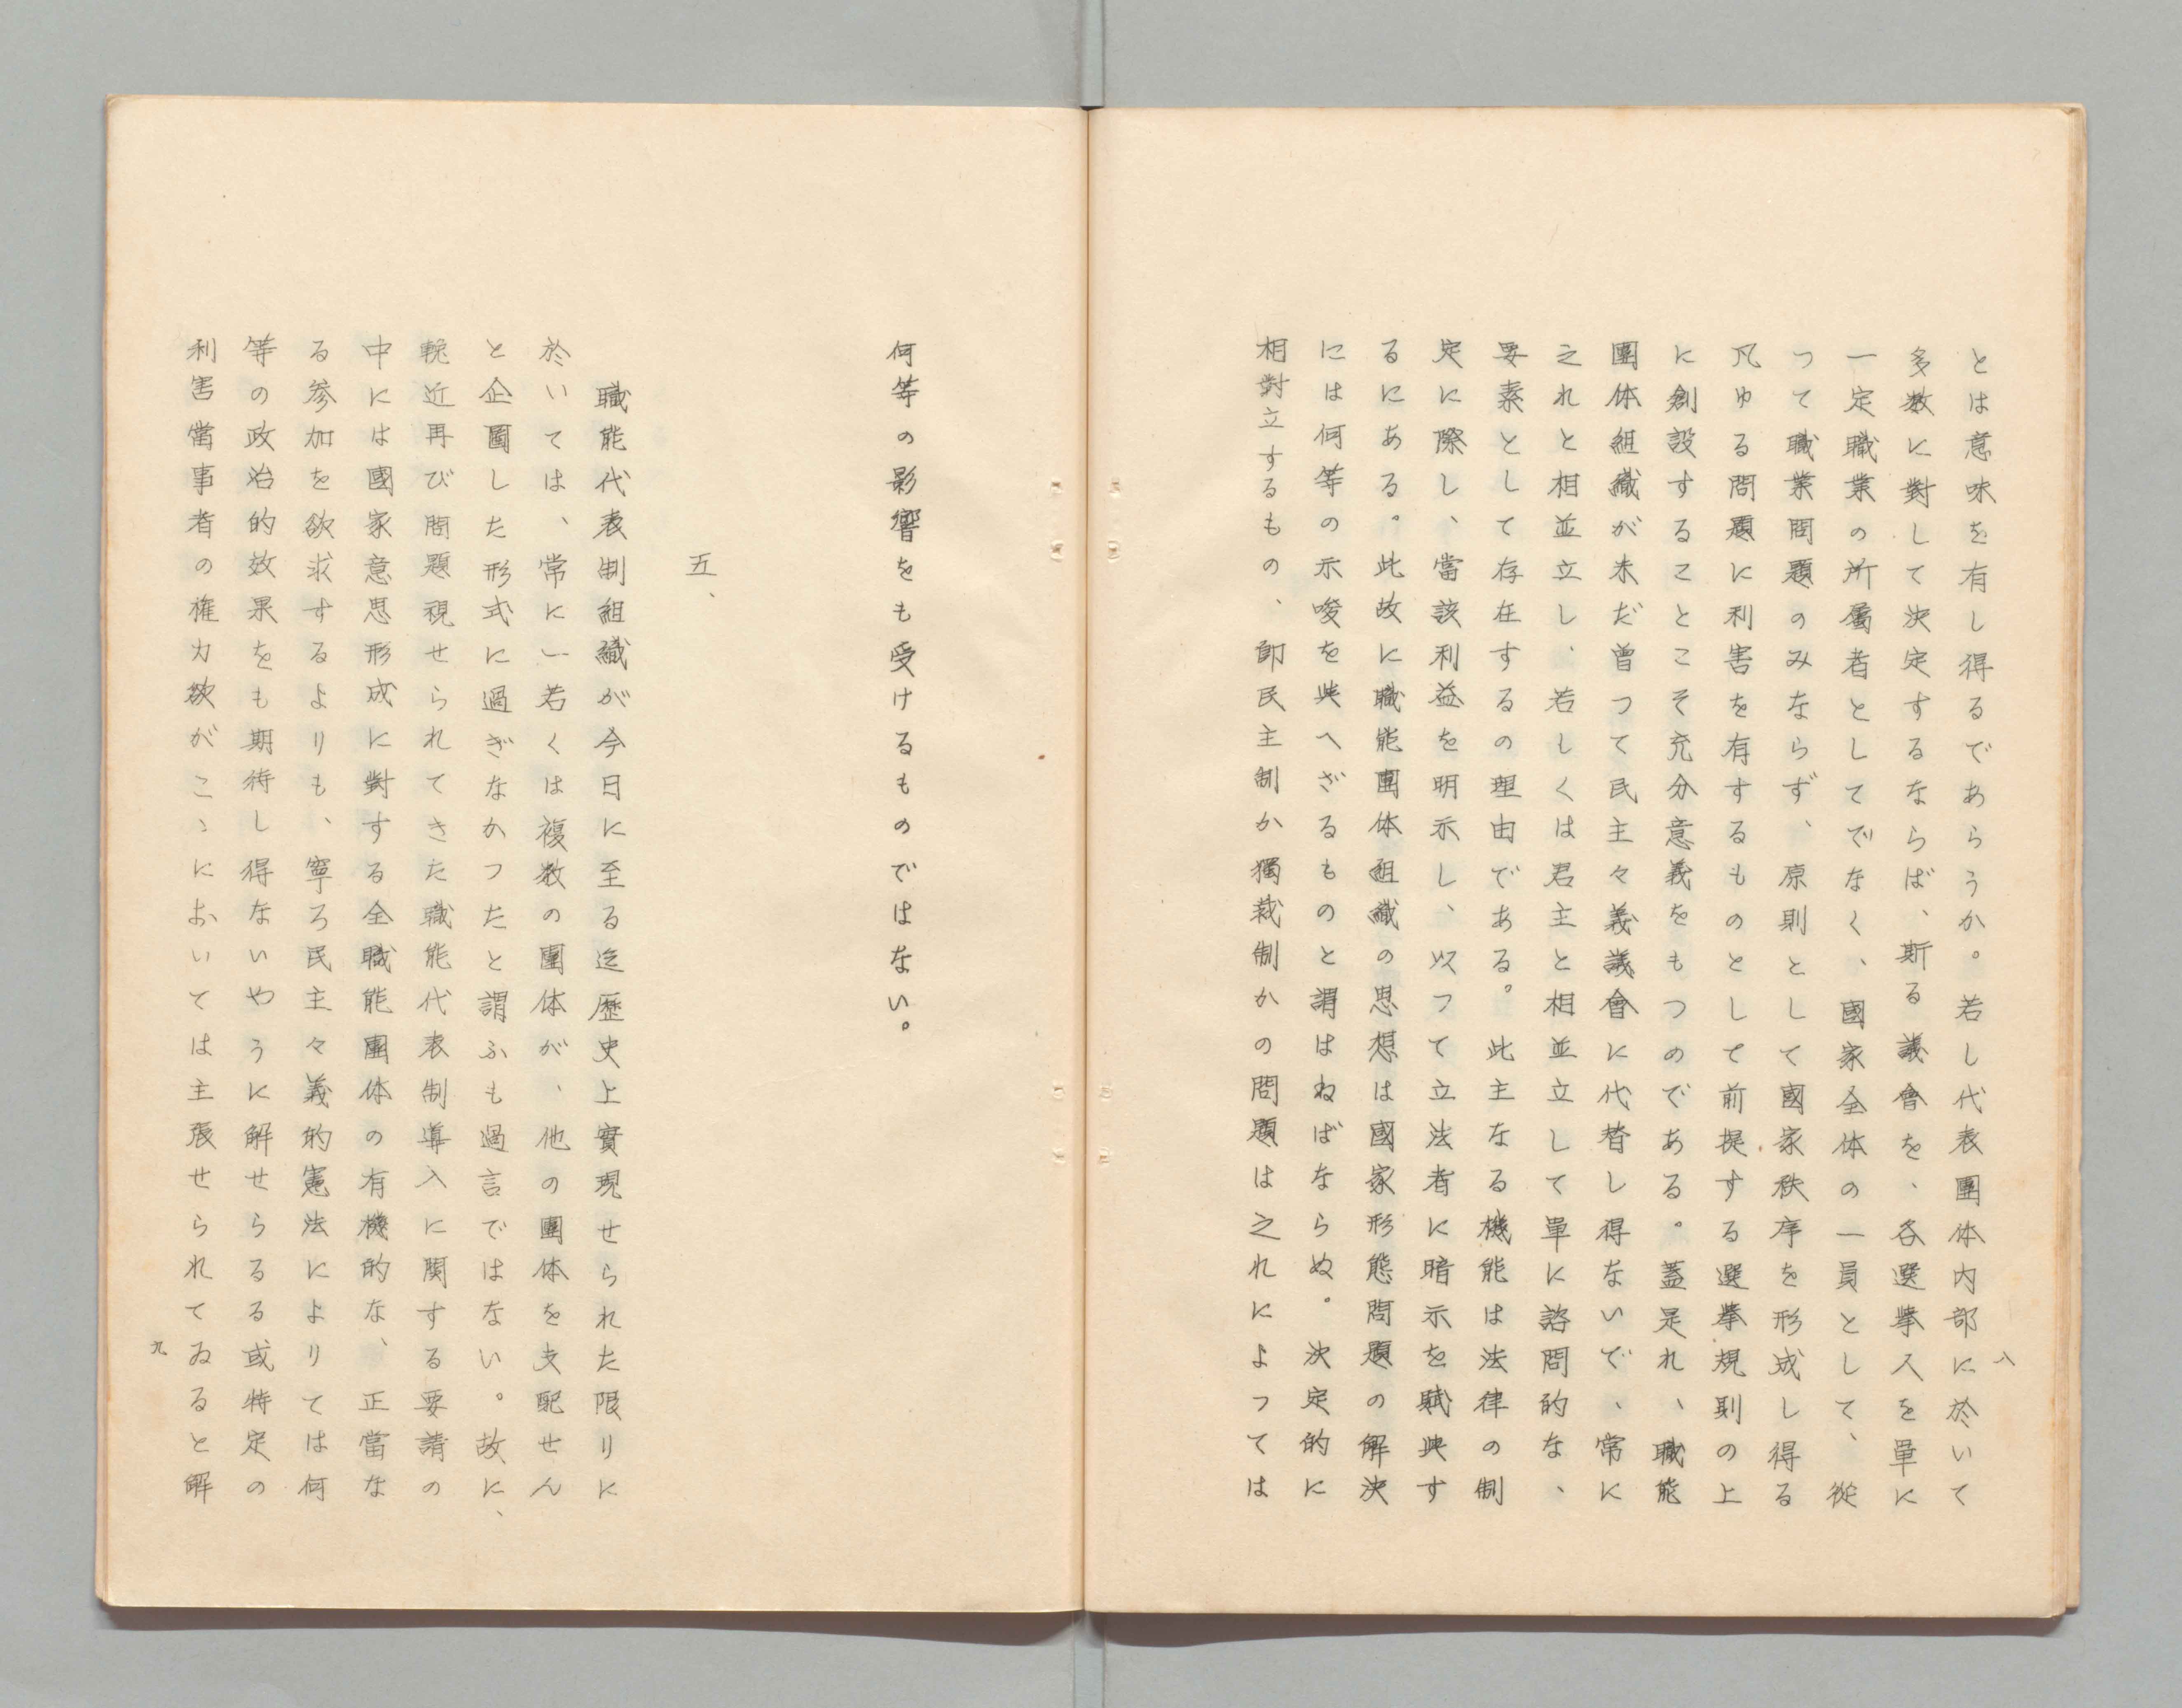 とは意味を有し得るであらうか。若し代表團体内部に於いて
多数に對して決定するならば、斯る議會を、各選挙人を單に
一定職業の所屬者としてでなく、國家全体の一員として、從
つて職業問題のみならず、原則として國家秩序を形成し得る
凡ゆる問題に利害を有するものとして前提する選挙規則の上
に創設することこそ充分意義をもつのである。蓋是れ、職能
團体組織が未だ曾つて民主々義議會に代替し得ないで、常に
之れと相並立し、若しくは君主と相並立して單に諮問的な、
要素として存在するの理由である。此主なる機能は法律の制
定に際し、當該利益を明示し、以つて立法者に暗示を賦與す
るにある。此故に職能團体組織の思想は國家形態問題の解決
には何等の示唆を與へざるものと謂はねばならぬ。決定的に
相對立するもの、即民主制か獨裁制かの問題は之れによつては
八
何等の影響をも受けるものではない。
五、
職能代表制組織が今日に至る迄歴史上實現せられた限りに
於いては、常に一若くは複数の團体が、他の團体を支配せん
と企圖した形式に過ぎなかつたと謂ふも過言ではない。故に、
輓近再び問題視せられてきた職能代表制導入に関する要請の
中には國家意思形成に對する全職能團体の有機的な、正當な
る参加を欲求するよりも、寧ろ民主々義的憲法によりては何
等の政治的效果をも期待し得ないやうに解せらるる或特定の
利害當事者の権力欲がこゝにおいては主張せられてゐると解
九